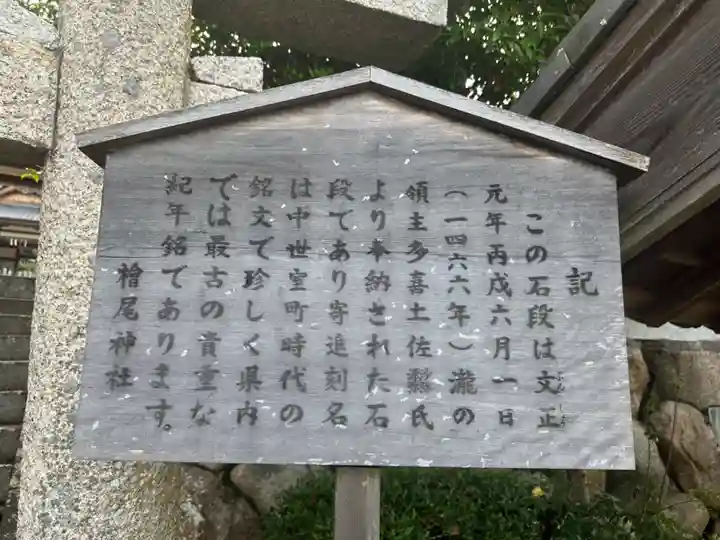 記
この石段は文正
元年丙戌六月一日
(一四六六年)瀧の
領主多喜土佐懸氏
より奉納された石
段であり寄進刻名
は中世室町時代の
銘文で珍しく県内
では最古の貴重な
紀年銘であります。
檜尾神社